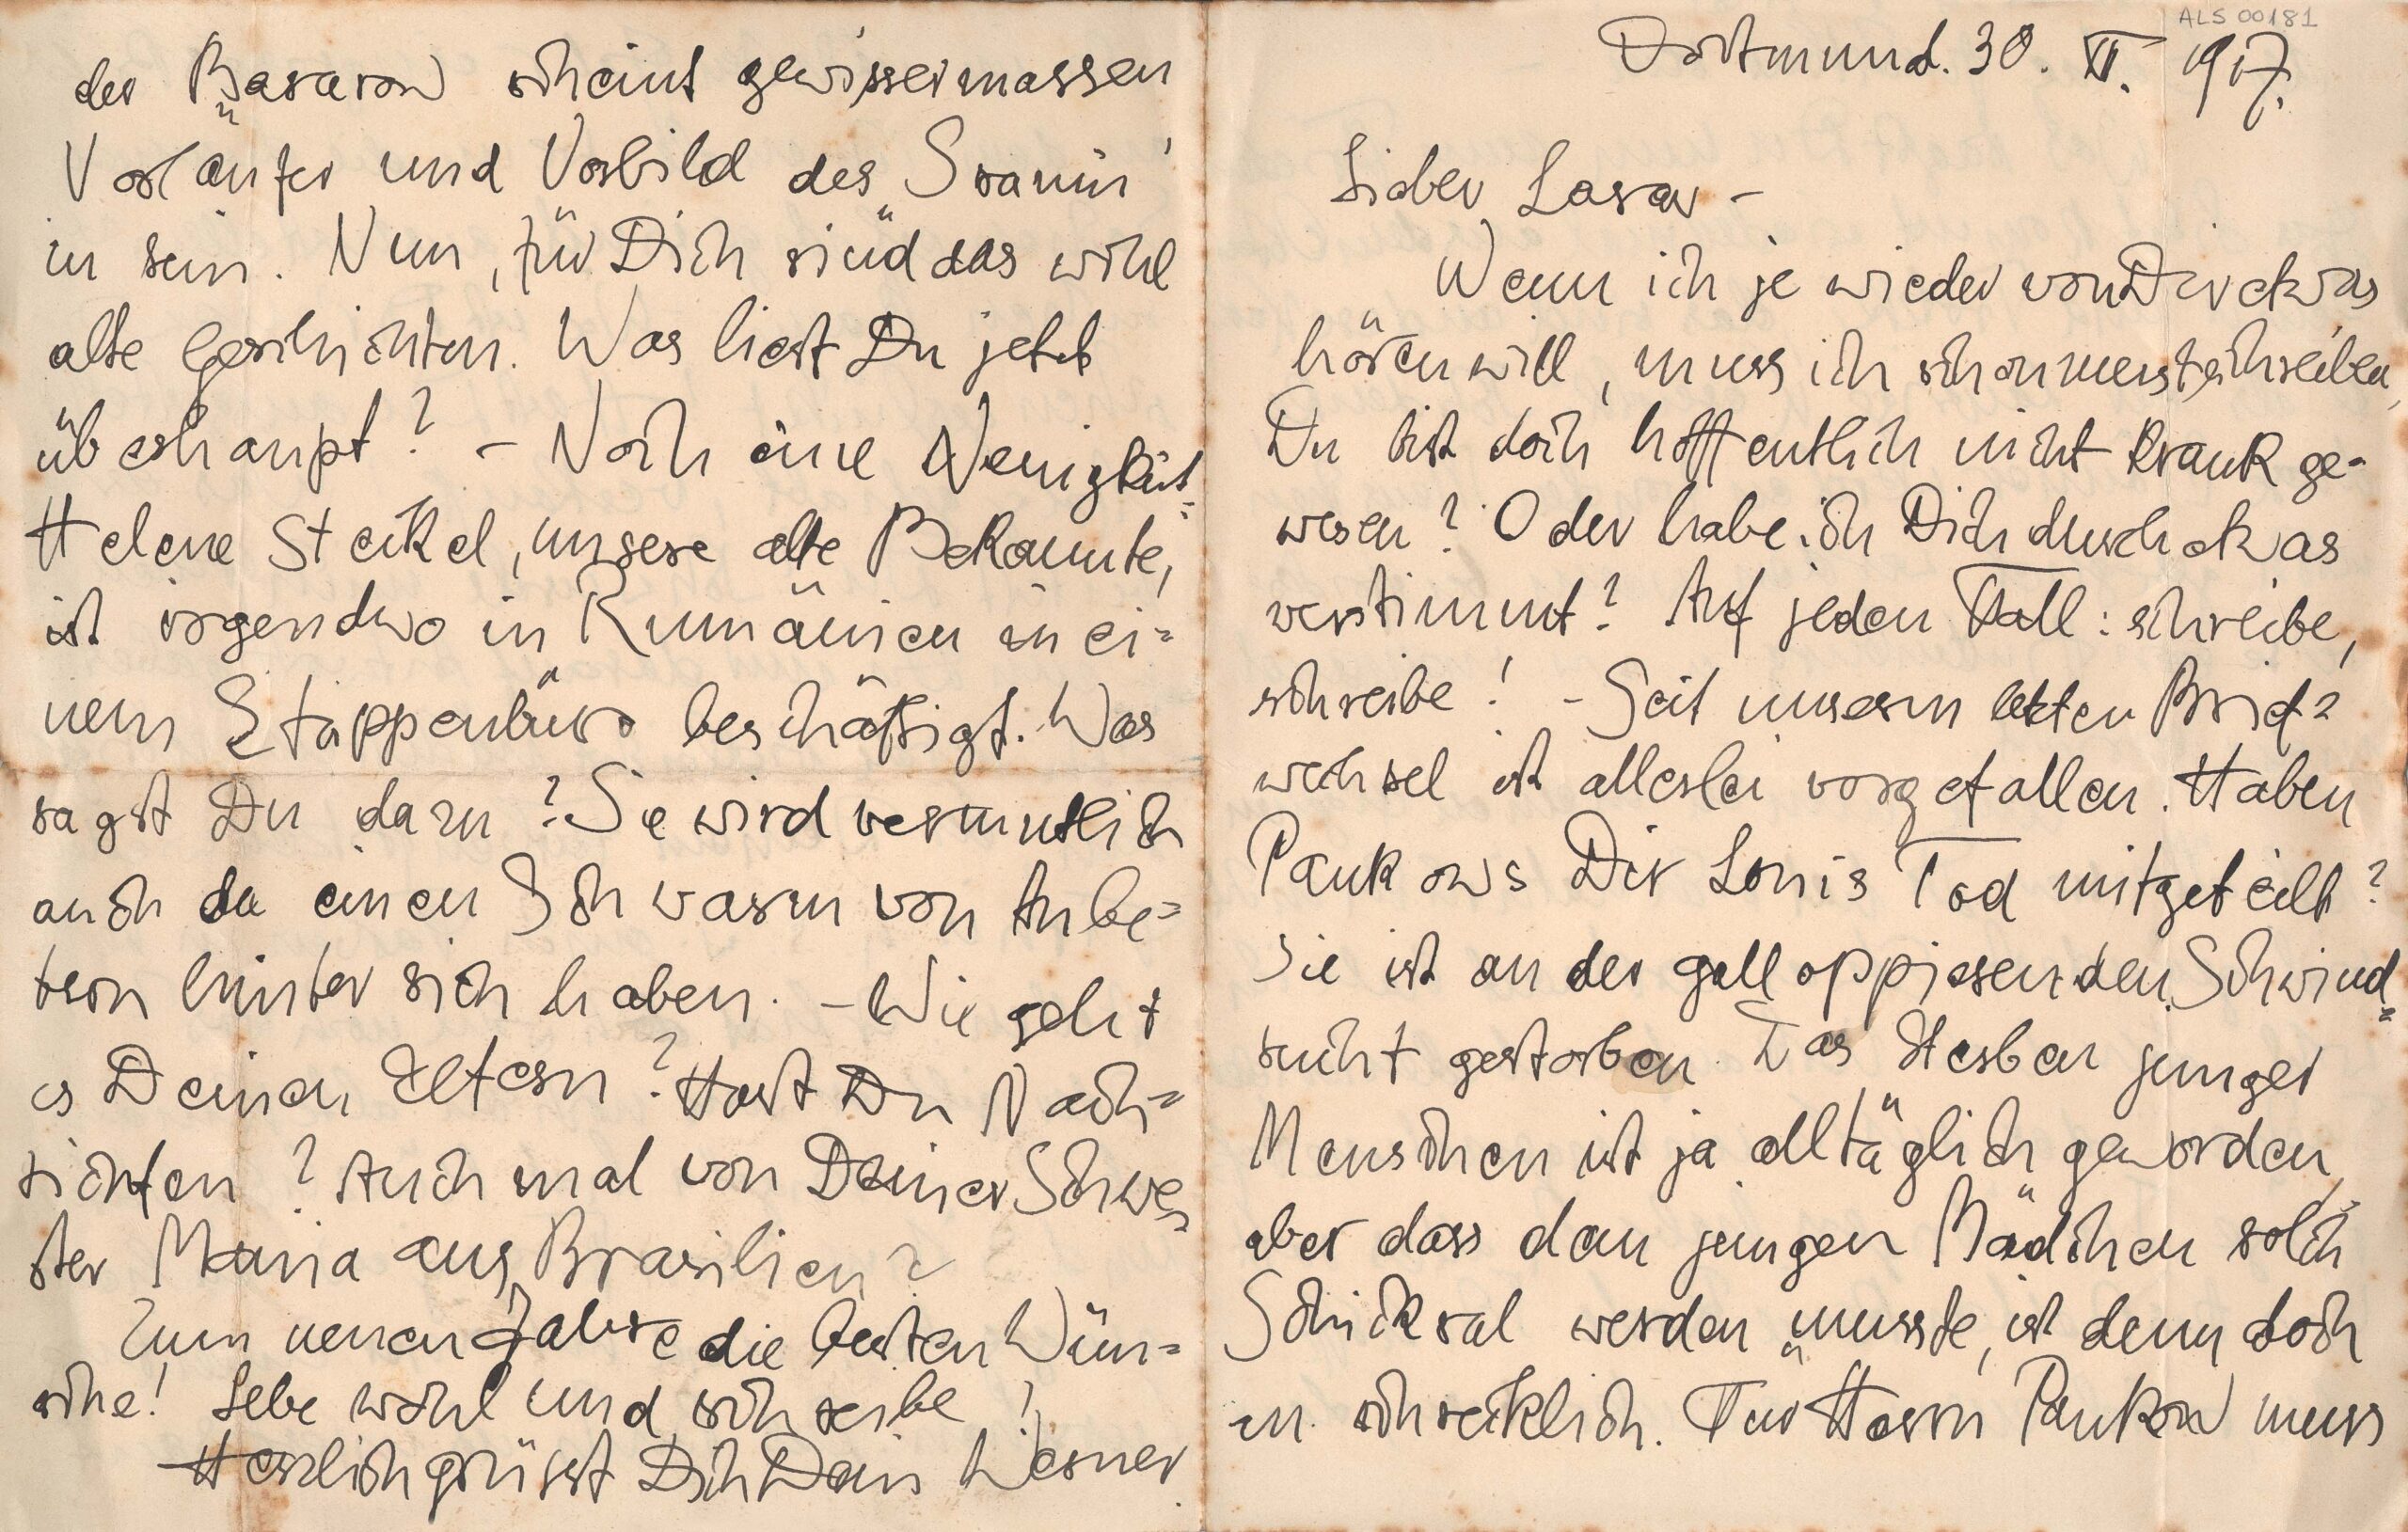 ALS 00181
Dortmund. 30. XII. 1917.
Lieber Lasar –
Wenn ich je wieder von Dir etwas
hören will, muss ich schon erst schreiben,
Du bist doch hoffentlich nicht krank ge-
wesen? Oder habe ich Dich durch etwas
verstimmt? Auf jeden Fall: schreibe,
schreibe! – Seit unserm letzten Brief=
wechsel ist allerlei vorgefallen. Haben
Pankows Dir Lonis Tod mitgeteilt?
Sie ist an der galloppierenden Schwind=
sucht gestorben. Das Sterben junger
Menschen ist ja alltäglich geworden,
aber dass dem jungen Mädchen solch
Schicksal werden musste, ist denn doch
zu schrecklich. Für Herrn Pankow muss
der Basarow scheint gewissermassen
Vorläufer und Vorbild des „Ssanin"
zu sein. Nun, für Dich sind das wohl
alte Geschichten. Was liest Du jetzt
überhaupt? – Noch eine Neuigkeit:
Helene Steckel, unsere alte Bekannte,
ist irgendwo in Rumänien in ei=
nem Etappenbüro beschäftigt. Was
sagst Du dazu? Sie wird vermutlich
auch da einen Schwarm von Anbe=
tern hinter sich haben. – Wie geht
es Deinen Eltern? Hast Du Nach=
richten? Auch mal von Deiner Schwe=
ster Maria aus Brasilien?
Zum neuen Jahre die besten Wün=
sche! Lebe wohl und schreibe!
Herzlich grüsst Dich Dein Werner.